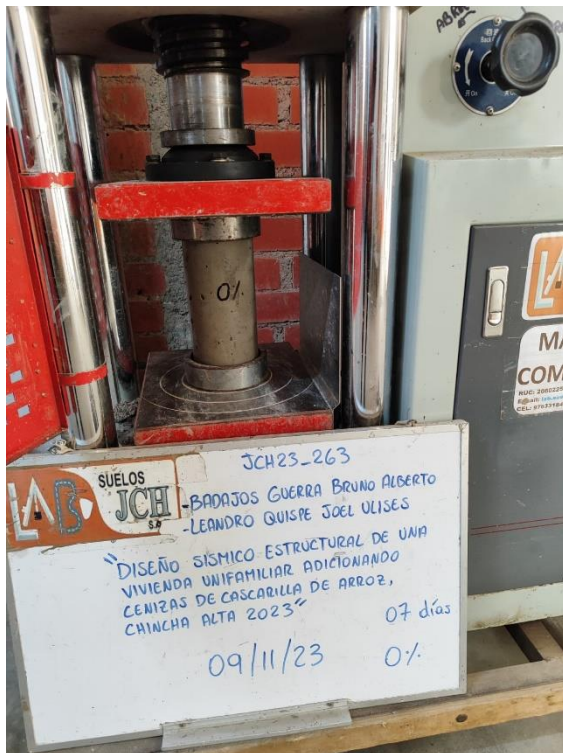 ABRIR
0%
LAB
SUELOS
JCH
JCH23-263
-BADAJOS GUERRA BRUNO ALBERTO
-LEANDRO QUISPE JOEL ULISES
"DISEÑO SISMICO ESTRUCTURAL DE UNA
VIVIENDA UNIFAMILIAR ADICIONANDO
CENIZAS DE CASCARILLA DE ARROZ,
CHINCHA ALTA 2023"
07 días
09/11/23
0%
MA
COM